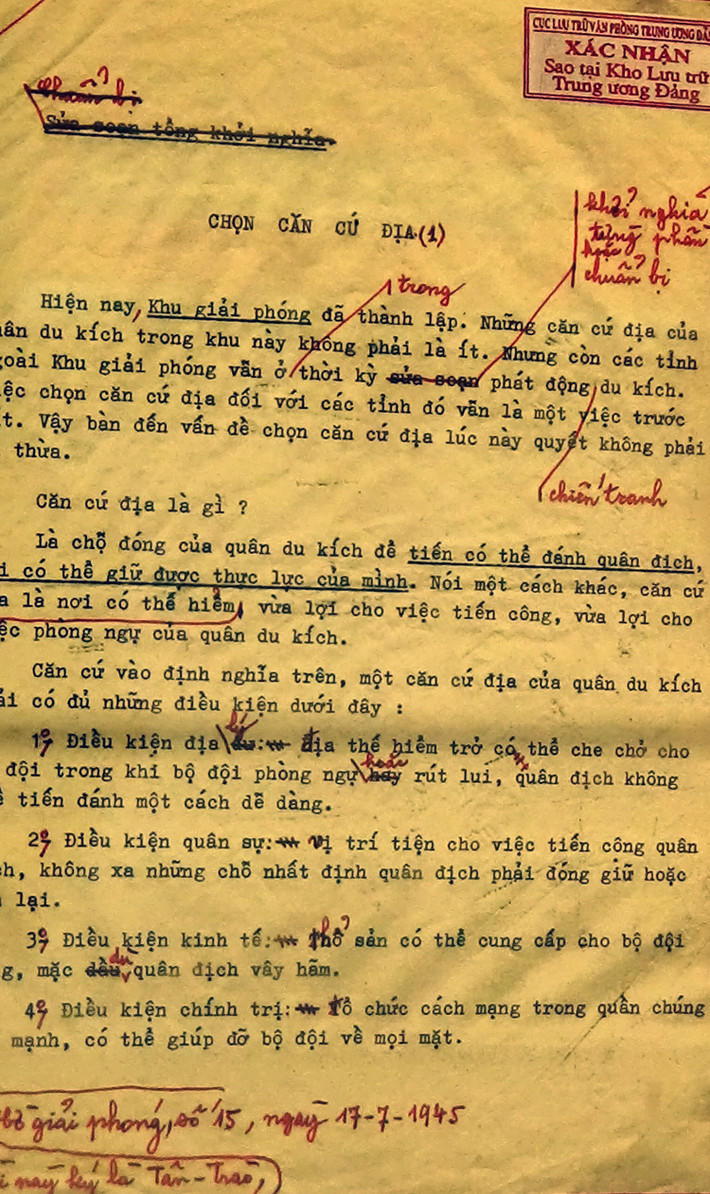 CỤC LƯU TRỮ VĂN PHÒNG TRUNG ƯƠNG ĐẢ
XÁC NHẬN
Sao tại Kho Lưu trữ
Trung ương Đảng
chuẩn bị
Sửa soạn tổng khởi nghĩa
CHỌN CĂN CỨ ĐỊA (1)
khởi nghĩa
từng phần
hoặc
chuẩn bị
trong
Hiện nay, Khu giải phóng đã thành lập. Những căn cứ địa của
ân du kích trong khu này không phải là ít. Nhưng còn các tỉnh
goài Khu giải phóng vẫn ở thời kỳ sửa soạn phát động du kích.
iệc chọn căn cứ địa đối với các tỉnh đó vẫn là một việc trước
t. Vậy bàn đến vấn đề chọn căn cứ địa lúc này quyết không phải
thừa.
chiến tranh
Căn cứ địa là gì ?
Là chỗ đóng của quân du kích để tiến có thể đánh quân địch,
i có thể giữ được thực lực của mình. Nói một cách khác, căn cứ
a là nơi có thế hiểm, vừa lợi cho việc tiến công, vừa lợi cho
ệc phòng ngự của quân du kích.
Căn cứ vào định nghĩa trên, một căn cứ địa của quân du kích
ải có đủ những điều kiện dưới đây :
1º, Điều kiện địa lý: địa thế hiểm trở có thể che chở cho
đội trong khi bộ đội phòng ngự hoặc hay rút lui, quân địch không
ể tiến đánh một cách dễ dàng.
2º, Điều kiện quân sự: vị trí tiện cho việc tiến công quân
ch, không xa những chỗ nhất định quân địch phải đóng giữ hoặc
lại.
3º, Điều kiện kinh tế: thổ sản có thể cung cấp cho bộ đội
g, mặc dầu dù quân địch vây hãm.
4º, Điều kiện chính trị: tổ chức cách mạng trong quần chúng
mạnh, có thể giúp đỡ bộ đội về mọi mặt.
giải phóng, số 15, ngày 17-7-1945
i này ký là Tân-Trào,